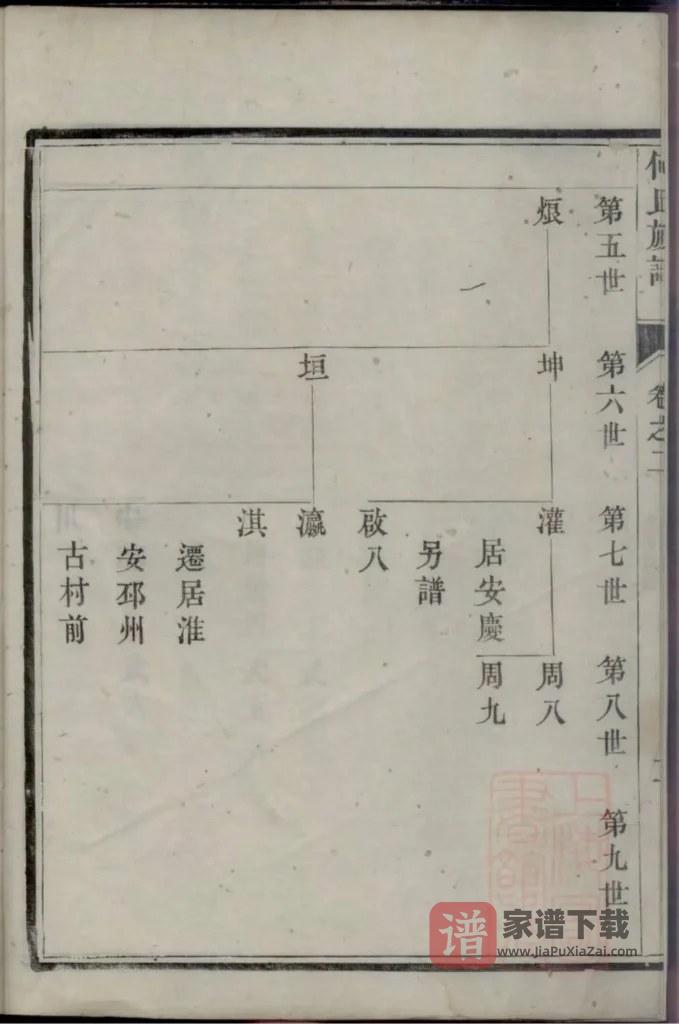 何氏族譜 卷之二
第五世 第六世 第七世 第八世 第九世
坤 灌 周八
居安慶 周九
另譜
啟八
垣 瀛
淇
遷居淮
安邳州
古村前
谱 家谱下载
www.JiaPuXiaZai.com